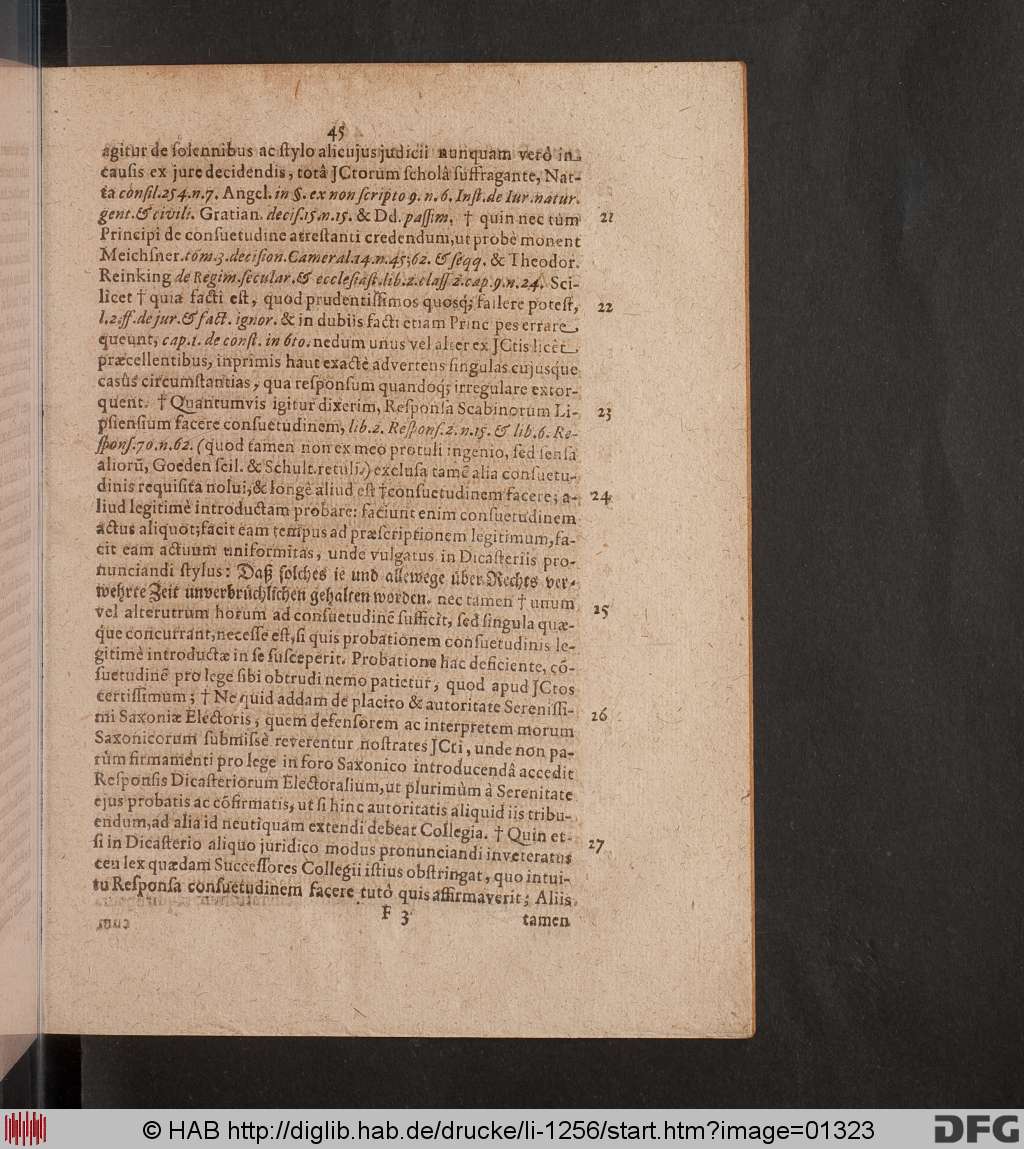 45
agitur de ſolennibus ac ſtylo alicujus judicii nunquam verò in
cauſis ex jure decidendis, totâ JCtorum ſcholâ ſuffragante, Nat-
ta conſil. 254. n. 7. Angel. in §. ex non ſcripto 9. n. 6. Inſt. de Iur. natur.
gent. & civili. Gratian. deciſ. 15. n. 15. & Dd. paſſim, † quin nec tùm 21
Principi de conſuetudine atteſtanti credendum, ut probè monent
Meichſner. tōm. 3. deciſion. Cameral. 14. n. 45; 62. & ſeqq. & Theodor.
Reinking de Regim. ſecular. & eccleſiaſt. lib. 2. claſſ 2. cap. 9. n. 24. Sci-
licet † quia facti eſt, quod prudentiſſimos quosq; fallere poteſt, 22
l. 2. ff. de jur. & fact. ignor. & in dubiis facti etiam Princ pes errare
queunt, cap. 1. de conſt. in 6to. nedum unus vel alter ex JCtis licèt
præcellentibus, inprimis haut exactè advertens ſingulas cujusque
casûs circumſtantias, qua reſponſum quandoq; irregulare extor-
quent. † Quantumvis igitur dixerim, Reſponſa Scabinorum Li- 23
pſienſium facere conſuetudinem, lib. 2. Reſponſ. 2. n. 15. & lib. 6. Re-
ſponſ. 70. n. 62. (quod tamen non ex meo protuli ingenio, ſed ſenſa
aliorũ, Goeden ſcil. & Schult. retuli.) excluſa tamē alia conſuetu-
dinis requiſita nolui, & longè aliud eſt † conſuetudinem facere; a- 24
liud legitimè introductam probare: faciunt enim conſuetudinem
actus aliquot; facit eam tempus ad præſcriptionem legitimum, fa-
cit eam actuum uniformitas, unde vulgatus in Dicaſteriis pro-
nunciandi ſtylus: Daß ſolches ie und allewege über Rechts ver-
wehrte Zeit unverbrüchlichen gehalten worden. nec tamen † unum 25
vel alterutrum horum ad conſuetudinē ſufficit, ſed ſingula quæ-
que concurrant, neceſſe eſt, ſi quis probationem conſuetudinis le-
gitimè introductæ in ſe ſuſceperit. Probatione hac deficiente, cō-
ſuetudinē pro lege ſibi obtrudi nemo patietur, quod apud JCtos
certiſſimum; † Ne quid addam de placito & autoritate Sereniſſi- 26
mi Saxoniæ Electoris, quem defenſorem ac interpretem morum
Saxonicorum ſubmiſsè reverentur noſtrates JCti, unde non pa-
rùm firmamenti pro lege in foro Saxonico introducendâ accedit
Reſponſis Dicaſteriorum Electoralium, ut plurimùm à Serenitate
ejus probatis ac cōfirmatis, ut ſi hinc autoritatis aliquid iis tribu-
endum, ad alia id neutiquam extendi debeat Collegia. † Quin et- 27
ſi in Dicaſterio aliquo juridico modus pronunciandi inveteratus
ceu lex quædam Succeſſores Collegii iſtius obſtringat, quo intui-
tu Reſponſa conſuetudinem facere tutò quis affirmaverit; Aliis
F 3 tamen
© HAB http://diglib.hab.de/drucke/li-1256/start.htm?image=01323
DFG